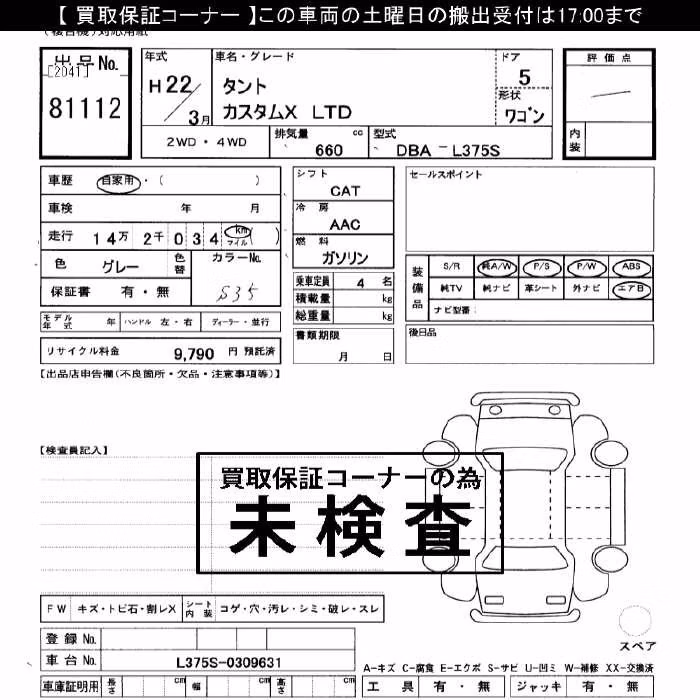 【 買取保証コーナー 】この車両の土曜日の搬出受付は17:00まで
(複合機)対応用紙
出品No. [2041] 81112
年式 H22/3月
車名・グレード タント カスタムX LTD
ドア 5
形状 ワゴン
評価点
内装
2WD・4WD
排気量 660 cc
型式 DBA-L375S
車歴 自家用・( )
車検 年 月
走行 14万 2千 034 km マイル ( )
色 グレー 色替 カラーNo. S35
保証書 有・無
シフト CAT
冷房 AAC
燃料 ガソリン
乗車定員 4 名
積載量 kg
総重量 kg
書類期限 月 日
セールスポイント
装備品 S/R 純A/W P/S P/W ABS
純TV 純ナビ 革シート 外ナビ エアB
ナビ型番:
後日品
モデル年式 年 ハンドル 左・右 ディーラー・並行
リサイクル料金 9,790 円 預託済
【出品店申告欄(不良箇所・欠品・注意事項等)】
【検査員記入】
買取保証コーナーの為
未検査
FW キズ・トビ石・割レX シート内装 コゲ・穴・汚レ・シミ・破レ・スレ
スペア
登録No.
車台No. L375S-0309631
A-キズ C-腐食 E-エクボ S-サビ U-凹ミ W-補修 XX-交換済
車庫証明用 長さ cm 幅 cm 高さ cm
工具 有・無 ジャッキ 有・無